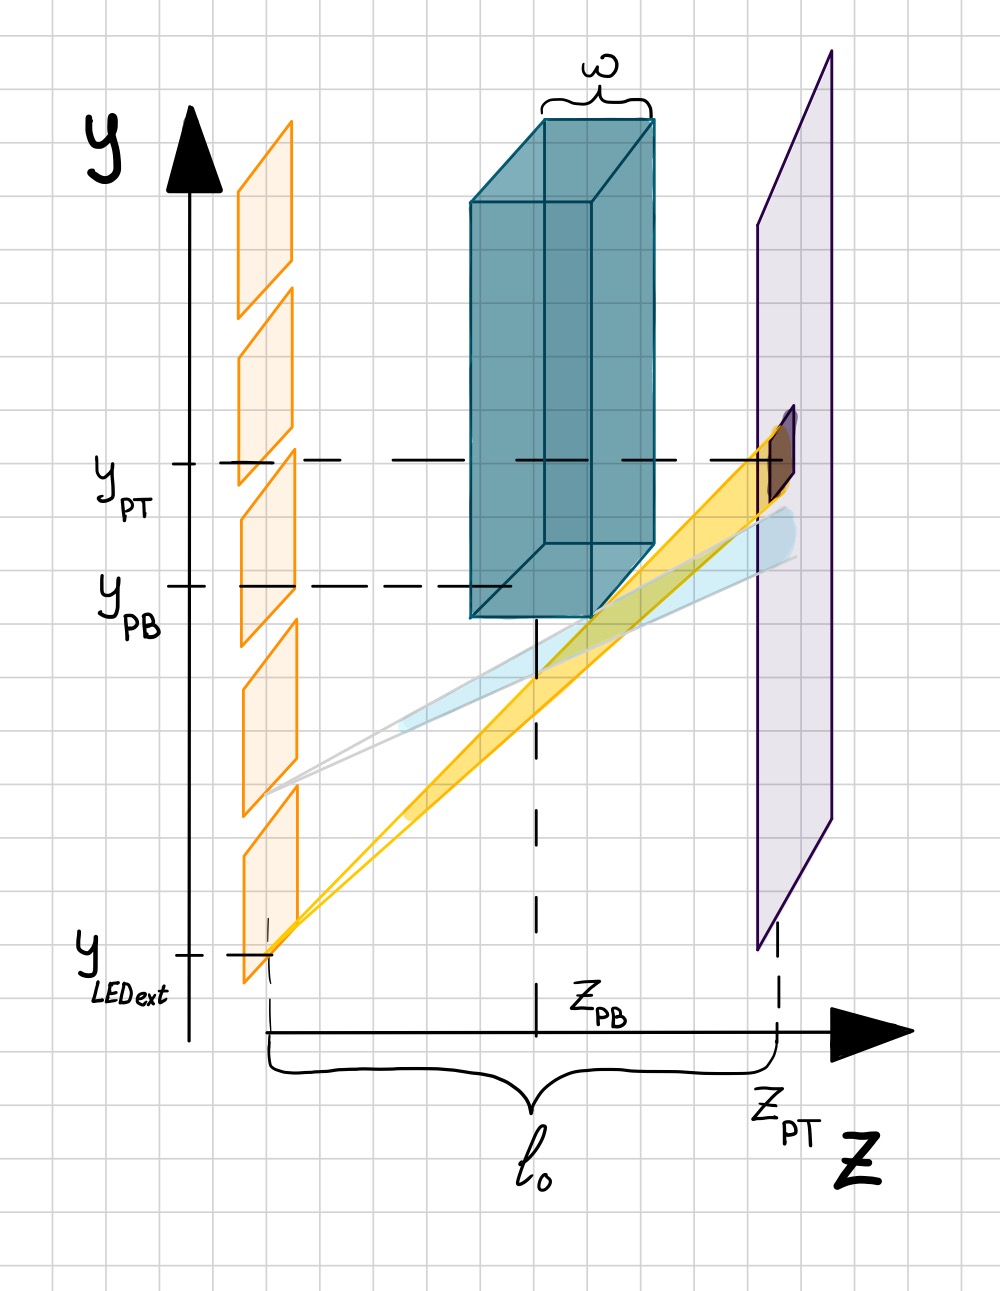 ω
y
y PT
y PB
y LEDext
z PB
z PT
z
l₀